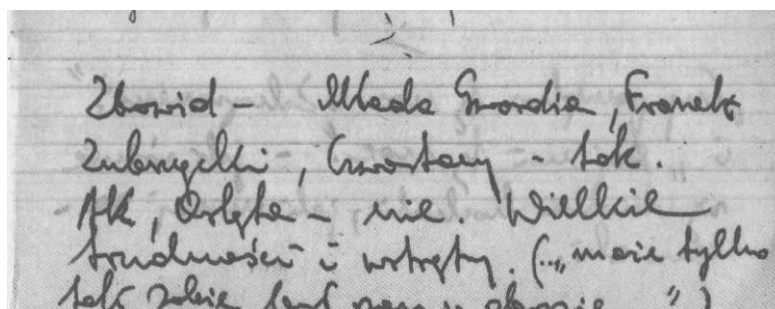 Zbowid – Młoda Gwardia, Franek
Zubrzycki, Czwartacy – tak.
AK, Orlęta – nie. Wielkie
trudności i wstręty. (... „może tylko
tak sobie